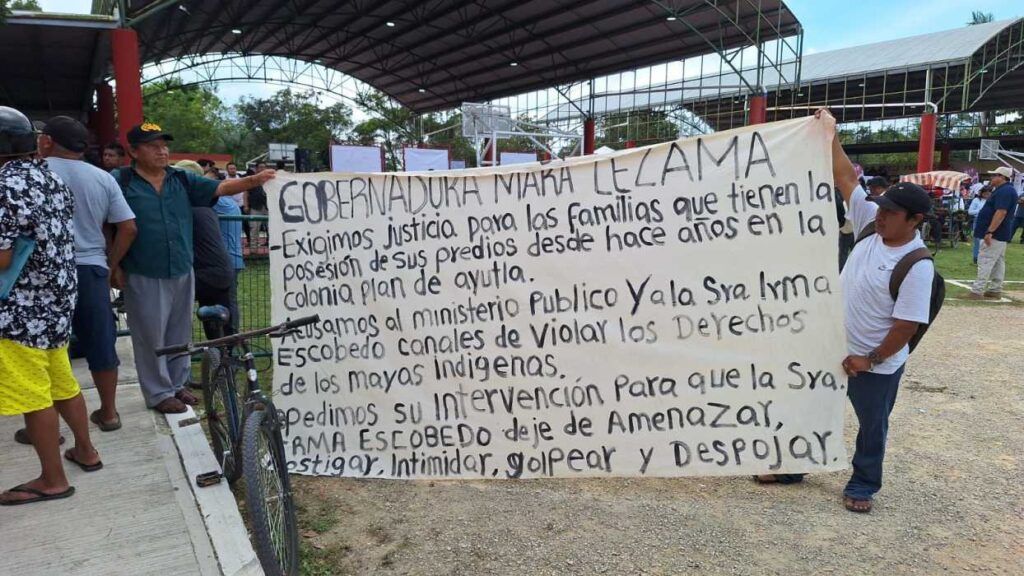 GOBERNADORA MARA LEZAMA
-Exigimos justicia para las familias que tienen la
posesión de sus predios desde hace años en la
colonia plan de ayutla.
Acusamos al ministerio Publico Y a la Sra Irma
Escobedo canales de Violar los Derechos
de los mayas indigenas.
pedimos su Intervención Para que la Sra.
IRMA ESCOBEDO deje de Amenazar,
ostigar, Intimidar, golpear y Despojar.